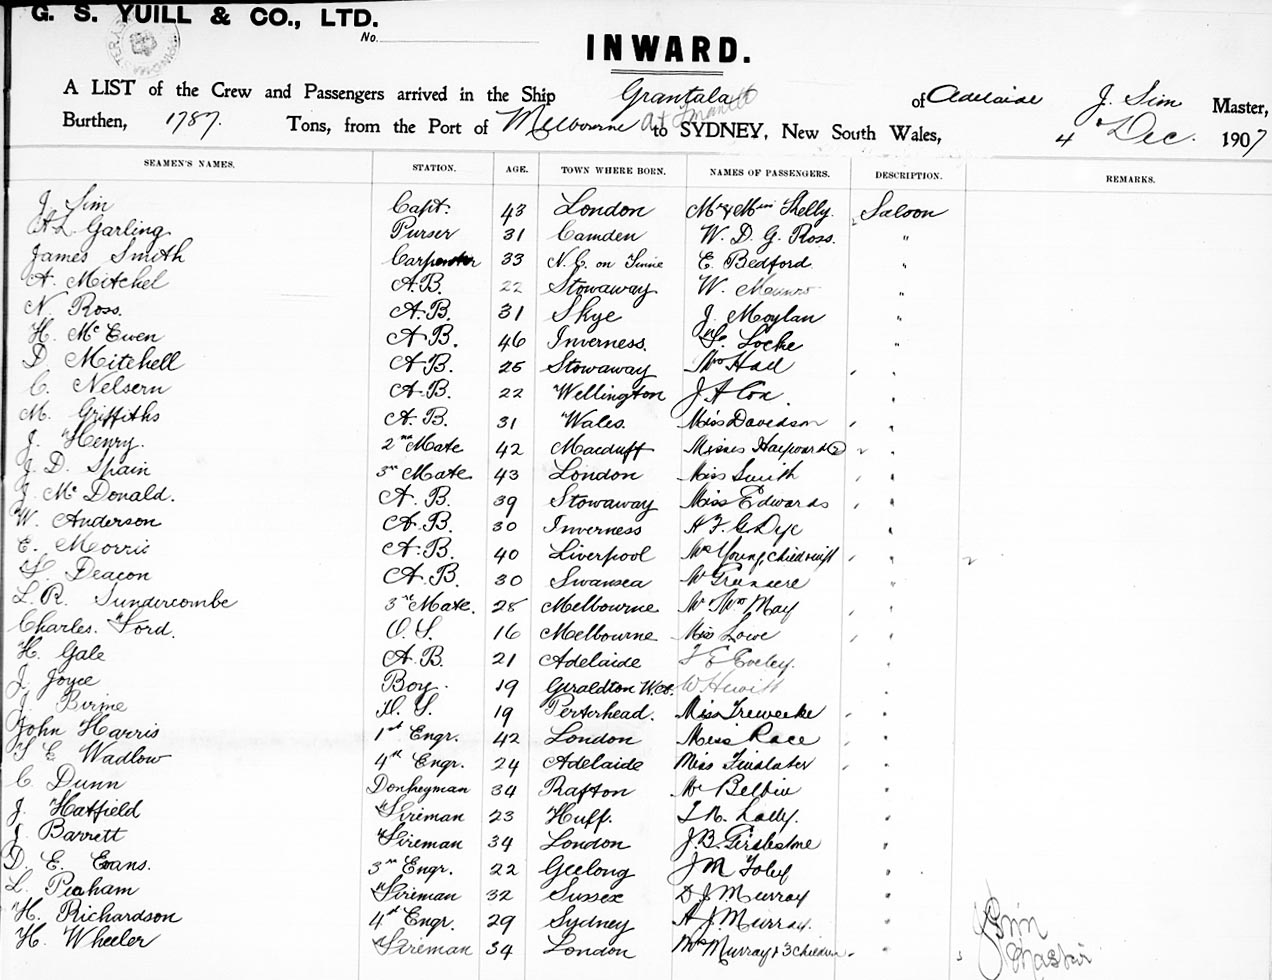 G. S. YUILL & CO., LTD.
No.
INWARD.
A LIST of the Crew and Passengers arrived in the Ship Grantala of Adelaide J. Sim Master,
Burthen, 1787. Tons, from the Port of Melbourne to SYDNEY, New South Wales, 4 Dec. 1907
SEAMEN'S NAMES. STATION. AGE. TOWN WHERE BORN. NAMES OF PASSENGERS. DESCRIPTION. REMARKS.
J. Sim Capt. 43 London Mr & Miss Shelly. 2 Saloon
A L Garling Purser 31 Camden W. D. G. Ross. "
James Smith Carpenter 33 N. C. on E. Bedford "
A. Mitchel A.B. 22 Stowaway W. Munro "
N. Ross. A.B. 31 Skye J. Moylan "
H. McEwen A.B. 46 Inverness. Locke "
D Mitchell A.B. 25 Stowaway Mrs Hall "
C. Nelsern A.B. 22 Wellington J A Cox. "
M. Griffiths A.B. 31 Wales. Miss Davidson "
J. Henry. 2nd Mate 42 Macduff Misses Hayward 2 2 "
J. D. Spain 3rd Mate 43 London Miss Smith "
J. McDonald. A.B. 39 Stowaway Miss Edwards "
W. Anderson A.B. 30 Inverness A F. G. Dye "
E. Morris A.B. 40 Liverpool Mrs Young, child & inft " 2
F. Deacon A.B. 30 Swansea Mr "
L. R. Sundercombe 3rd Mate. 28 Melbourne Mr Mrs May "
Charles. Ford. O. S. 16 Melbourne Miss Lowe "
H. Gale A.B. 21 Adelaide "
J. Joyce Boy. 19 Geraldton W.A. W Hewitt "
J. Birnie O. S. 19 Peterhead. Miss Treweeke "
John Harris 1st Engr. 42 London Miss Race "
F E Wadlow 4th Engr. 24 Adelaide Miss Finlater "
C Dunn Donkeyman 34 Rafton Mr Belbin "
J. Hatfield Fireman 23 Huff. Lally. "
J Barrett Fireman 34 London J. B. Girdlestone "
D. E. Evans. 3rd Engr. 22 Geelong J M Foley "
L. Peaham Fireman 32 Sussex D J Murray "
H. Richardson 4th Engr. 29 Sydney A J. Murray. "
H. Wheeler Fireman 34 London Mrs Murray & 3 Children " 3
J Sim
Master